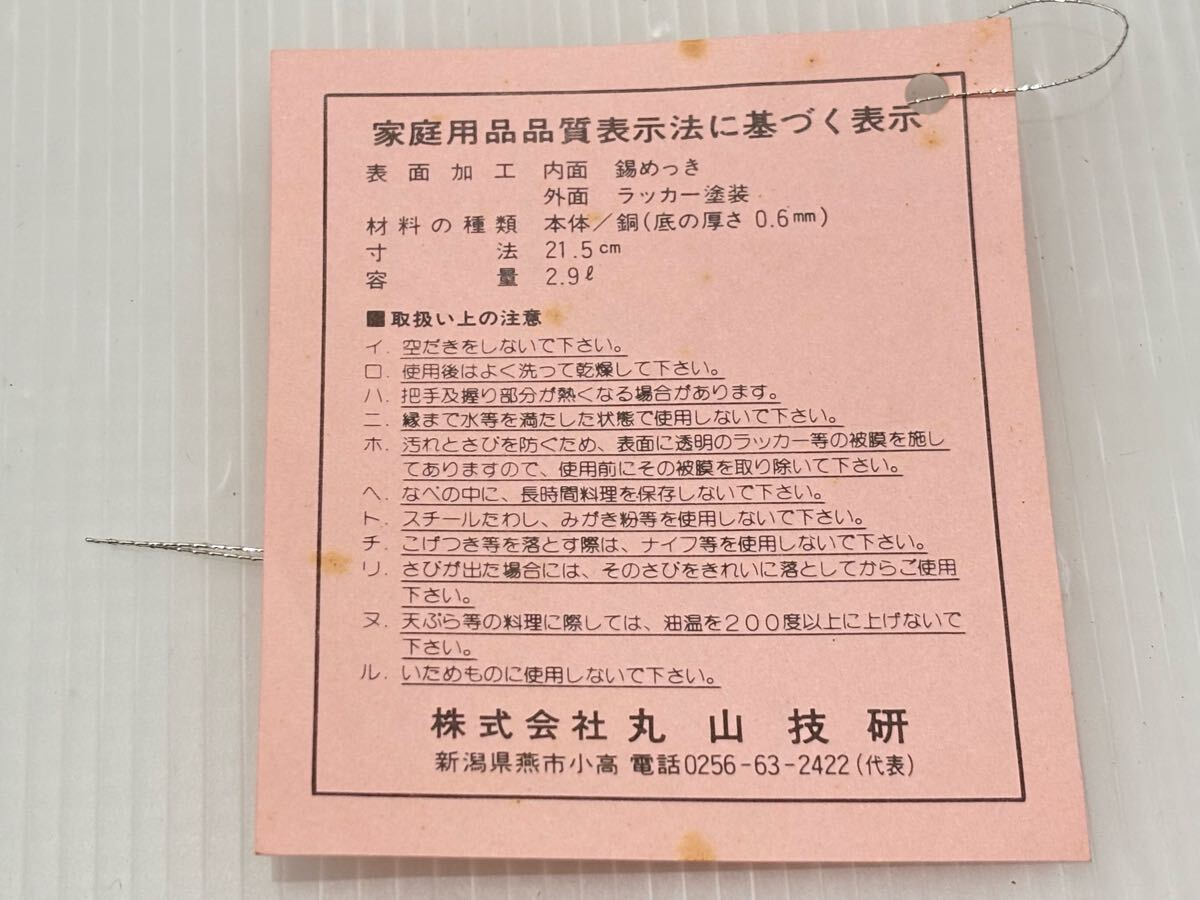 家庭用品品質表示法に基づく表示
表面加工 内面 錫めっき
外面 ラッカー塗装
材料の種類 本体/銅(底の厚さ 0.6mm)
寸法 21.5cm
容量 2.9ℓ
■取扱い上の注意
イ. 空だきをしないで下さい。
ロ. 使用後はよく洗って乾燥して下さい。
ハ. 把手及握り部分が熱くなる場合があります。
ニ. 縁まで水等を満たした状態で使用しないで下さい。
ホ. 汚れとさびを防ぐため、表面に透明のラッカー等の被膜を施し
てありますので、使用前にその被膜を取り除いて下さい。
ヘ. なべの中に、長時間料理を保存しないで下さい。
ト. スチールたわし、みがき粉等を使用しないで下さい。
チ. こげつき等を落とす際は、ナイフ等を使用しないで下さい。
リ. さびが出た場合には、そのさびをきれいに落としてからご使用
下さい。
ヌ. 天ぷら等の料理に際しては、油温を200度以上に上げないで
下さい。
ル. いためものに使用しないで下さい。
株式会社 丸山技研
新潟県燕市小高 電話0256-63-2422(代表)